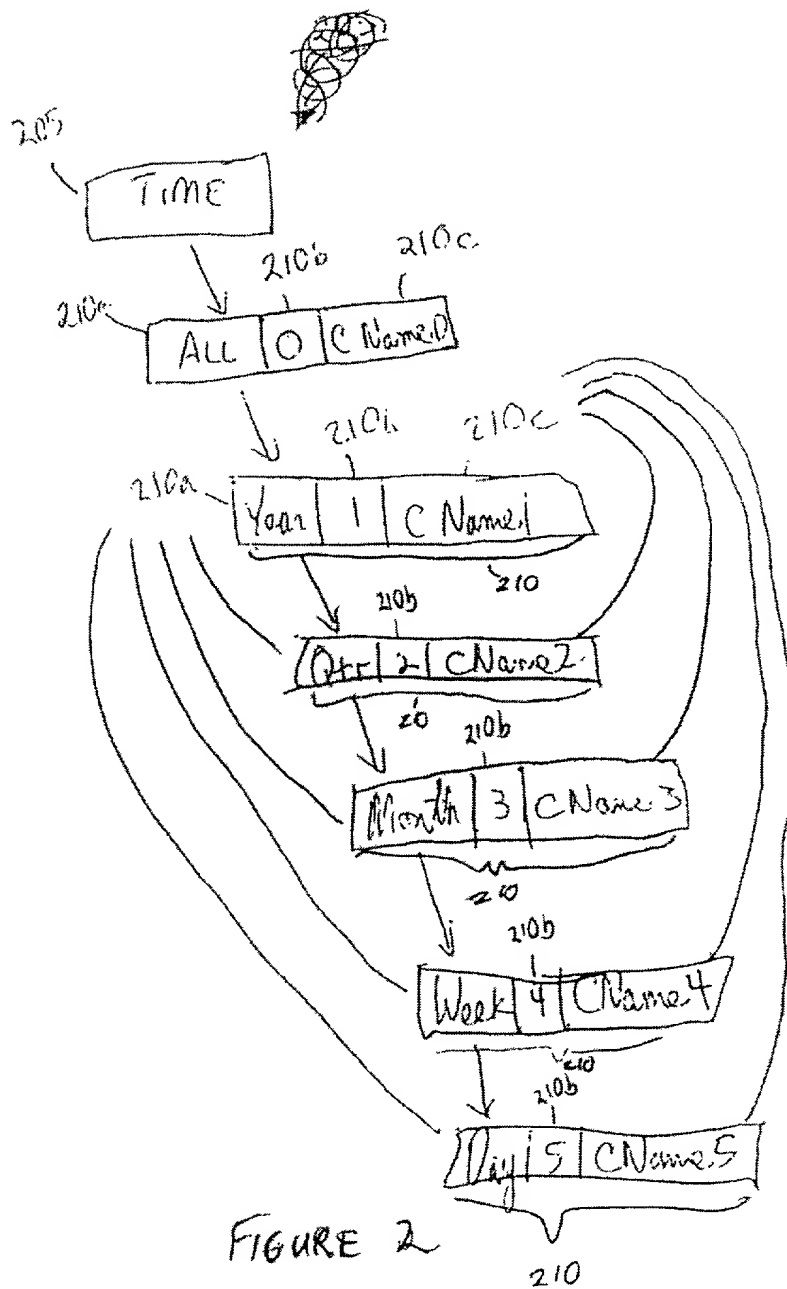 205
TIME
210b 210c
210a
ALL 0 CName.0
210b 210c
210a
Year 1 CName.1
210
210b
Qtr 2 CName2.
20
210b
Month 3 CName.3
210
210b
Week 4 CName.4
210
210b
Day 5 CName.5
210
FIGURE 2